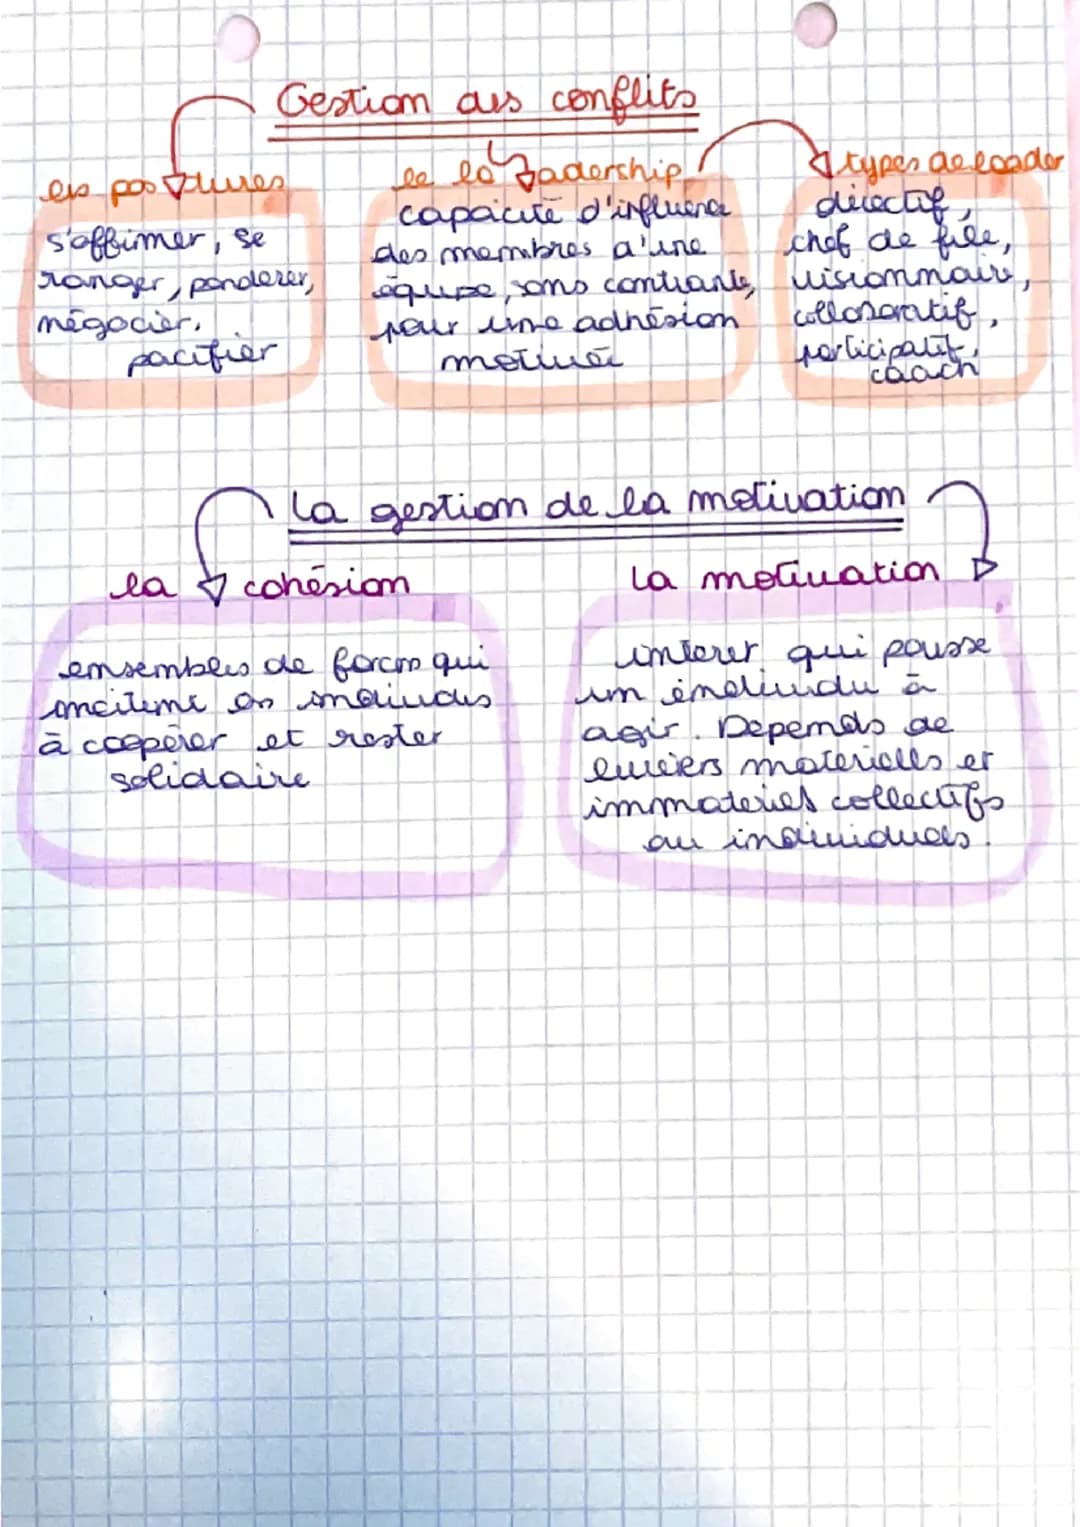 Gestion des conflits
les postures
s'affirmer, se
ranger, ponderer,
négocier,
pacifier
le leadership
capacité d'influence
des membres d'une
équipe, sans contrainte,
pour une adhésion
motivée
types de leader
directif,
chef de file,
visionnaire,
collaboratif,
participatif,
coach
La gestion de la motivation
la cohésion
ensembles de forces qui
incitent les individus
à coopérer et rester
solidaire
La motivation
interet qui pousse
un individu à
agir. Depends de
leviers materielles et
immateriel collectifs
ou individuels.